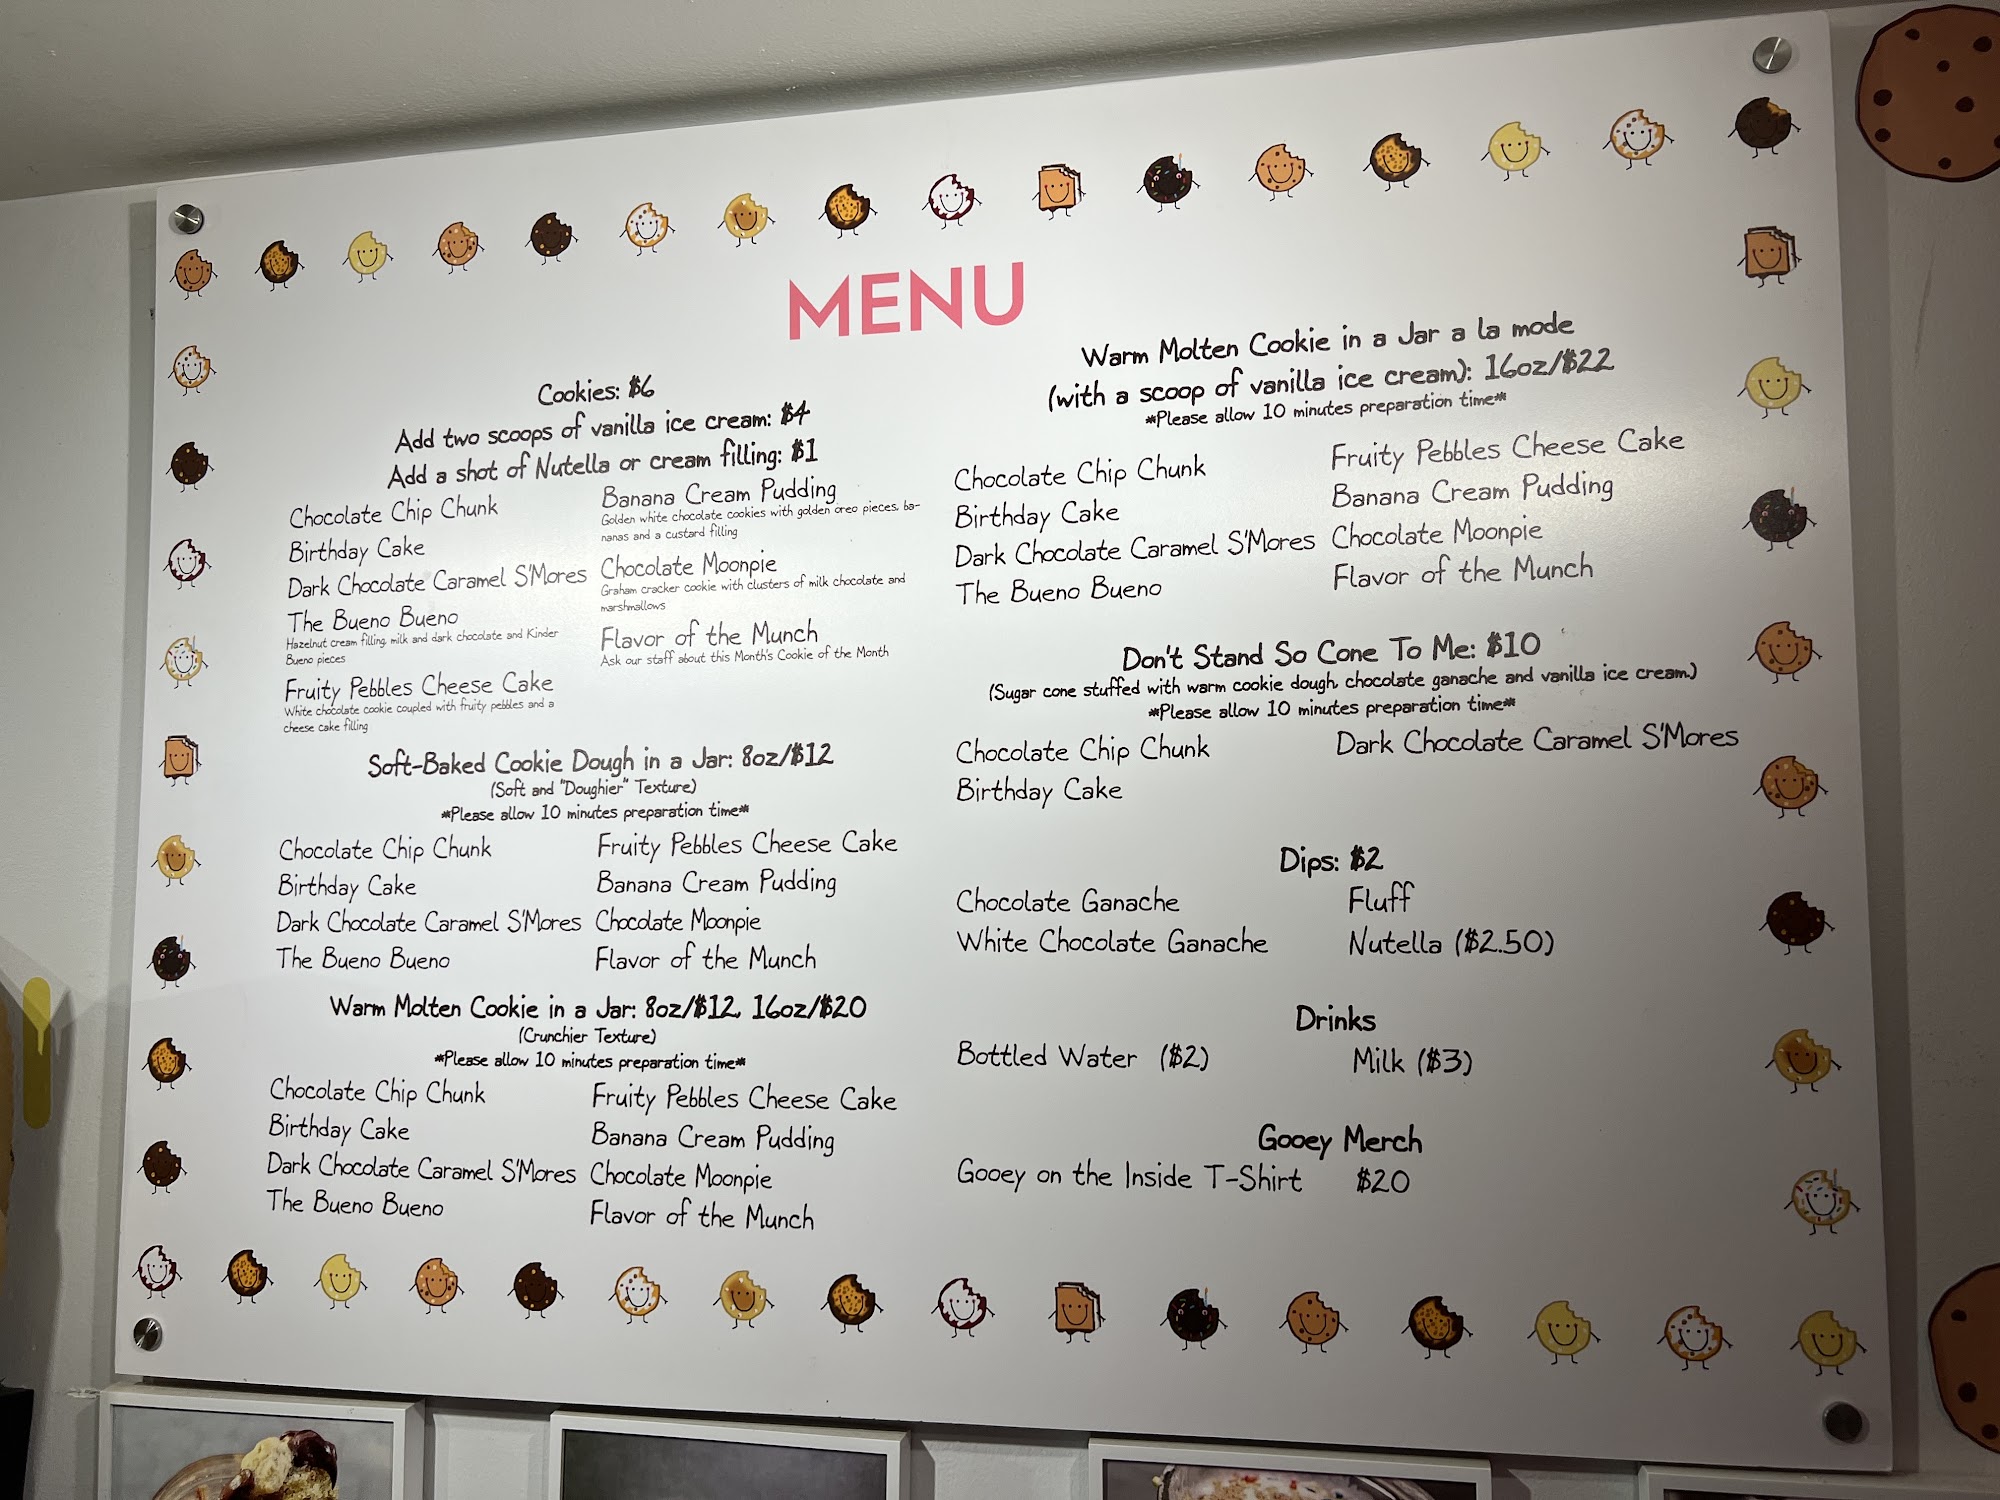 MENU
Cookies: $6
Add two scoops of vanilla ice cream: $4
Add a shot of Nutella or cream filling: $1
Chocolate Chip Chunk
Birthday Cake
Dark Chocolate Caramel S'Mores
The Bueno Bueno
Hazelnut cream filling, milk and dark chocolate and Kinder
Bueno pieces
Fruity Pebbles Cheese Cake
White chocolate cookie coupled with fruity pebbles and a
cheese cake filling
Banana Cream Pudding
Golden white chocolate cookies with golden oreo pieces, ba-
nanas and a custard filling
Chocolate Moonpie
Graham cracker cookie with clusters of milk chocolate and
marshmallows
Flavor of the Munch
Ask our staff about this Month's Cookie of the Month
Soft-Baked Cookie Dough in a Jar: 8oz/$12
(Soft and "Doughier" Texture)
*Please allow 10 minutes preparation time*
Chocolate Chip Chunk
Birthday Cake
Dark Chocolate Caramel S'Mores
The Bueno Bueno
Fruity Pebbles Cheese Cake
Banana Cream Pudding
Chocolate Moonpie
Flavor of the Munch
Warm Molten Cookie in a Jar: 8oz/$12, 16oz/$20
(Crunchier Texture)
*Please allow 10 minutes preparation time*
Chocolate Chip Chunk
Birthday Cake
Dark Chocolate Caramel S'Mores
The Bueno Bueno
Fruity Pebbles Cheese Cake
Banana Cream Pudding
Chocolate Moonpie
Flavor of the Munch
Warm Molten Cookie in a Jar a la mode
(with a scoop of vanilla ice cream): 16oz/$22
*Please allow 10 minutes preparation time*
Chocolate Chip Chunk
Birthday Cake
Dark Chocolate Caramel S'Mores
The Bueno Bueno
Fruity Pebbles Cheese Cake
Banana Cream Pudding
Chocolate Moonpie
Flavor of the Munch
Don't Stand So Cone To Me: $10
(Sugar cone stuffed with warm cookie dough, chocolate ganache and vanilla ice cream.)
*Please allow 10 minutes preparation time*
Chocolate Chip Chunk
Birthday Cake
Dark Chocolate Caramel S'Mores
Dips: $2
Chocolate Ganache
White Chocolate Ganache
Fluff
Nutella ($2.50)
Drinks
Bottled Water ($2)
Milk ($3)
Gooey Merch
Gooey on the Inside T-Shirt $20